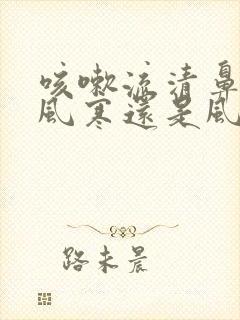 咳嗽流清鼻
风寒還是风
路未晨